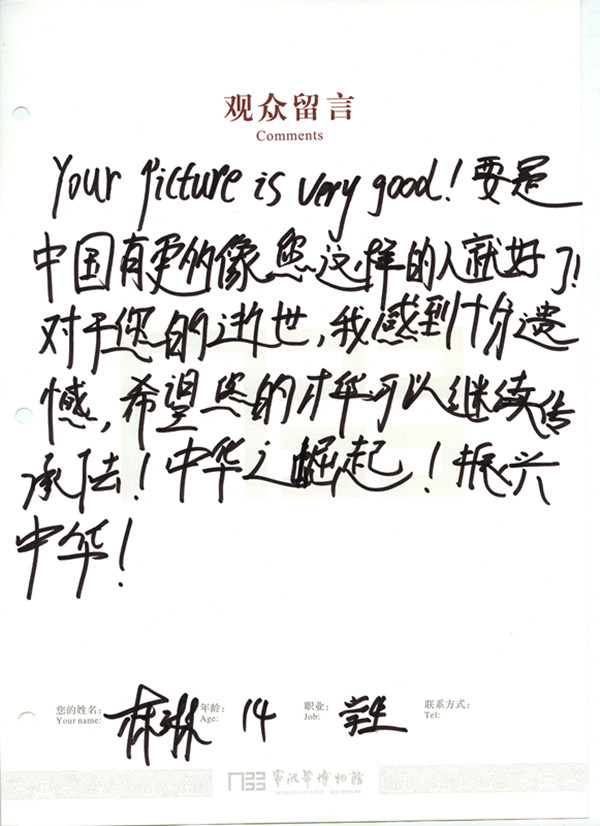 观众留言
Comments
Your Picture is very good! 要是
中国有更多像您这样的人就好了!
对于您的逝世,我感到十分遗
憾,希望您的才华可以继续传
承下去!中华之崛起!振兴
中华!
您的姓名: 林琳 年龄: 14 职业: 学生 联系方式:
Your name: Age: Job: Tel:
寧波幫博物館
NINGBOBANG MUSEUM